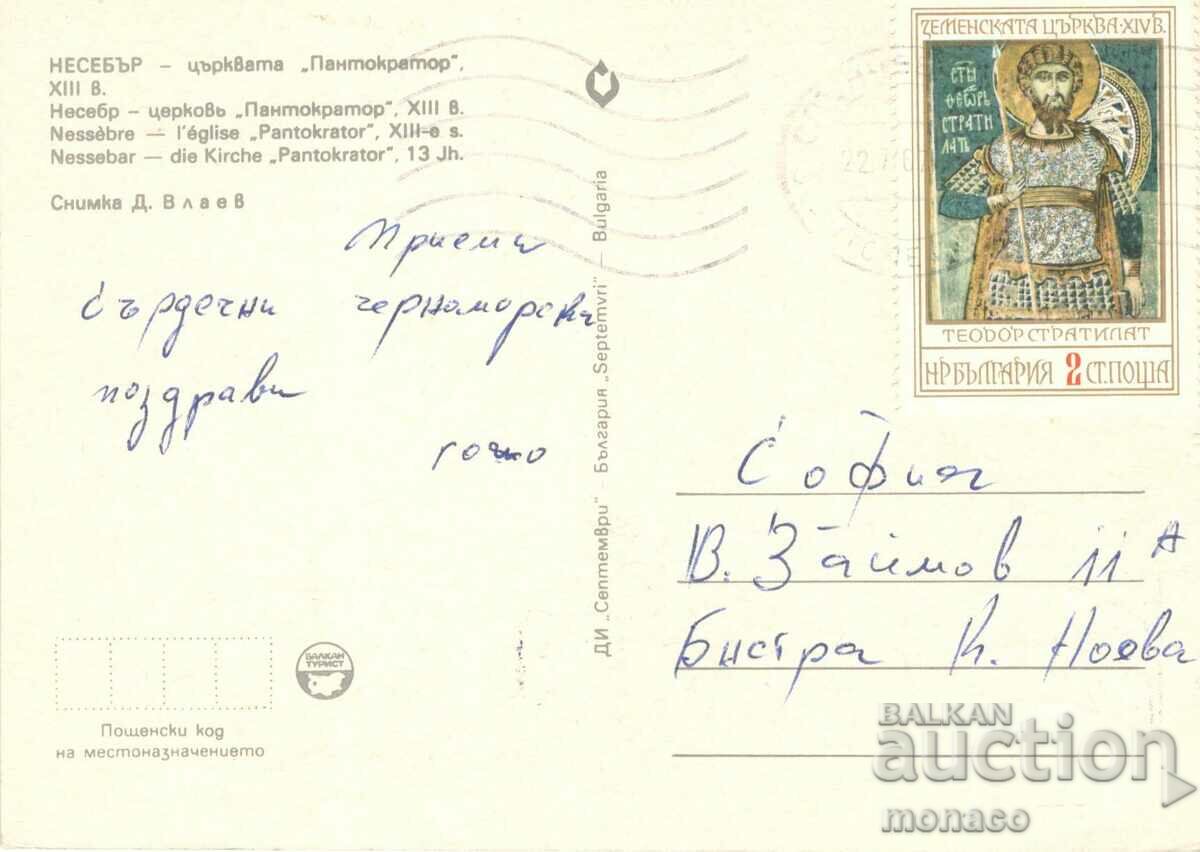 НЕСЕБЪР – църквата „Пантократор",
XIII в.
Несебр – церковь „Пантократор", XIII в.
Nessèbre — l'église „Pantokrator", XIII-e s.
Nessebar — die Kirche „Pantokrator", 13 Jh.
Снимка Д. Влаев
Приеми
сърдечни черноморски
поздрави
Пощенски код
на местоназначението
БАЛКАН
ТУРИСТ
ДИ „Септември" – България „Septemvri" – Bulgaria
ЗЕМЕНСКАТА ЦЪРКВА·XIV В.
ТЕОДОР СТРАТИЛАТ
НР БЪЛГАРИЯ 2 СТ. ПОЩА
София
В. Займов 11 А
Бистра К. Ноева
BALKAN
auction
monaco